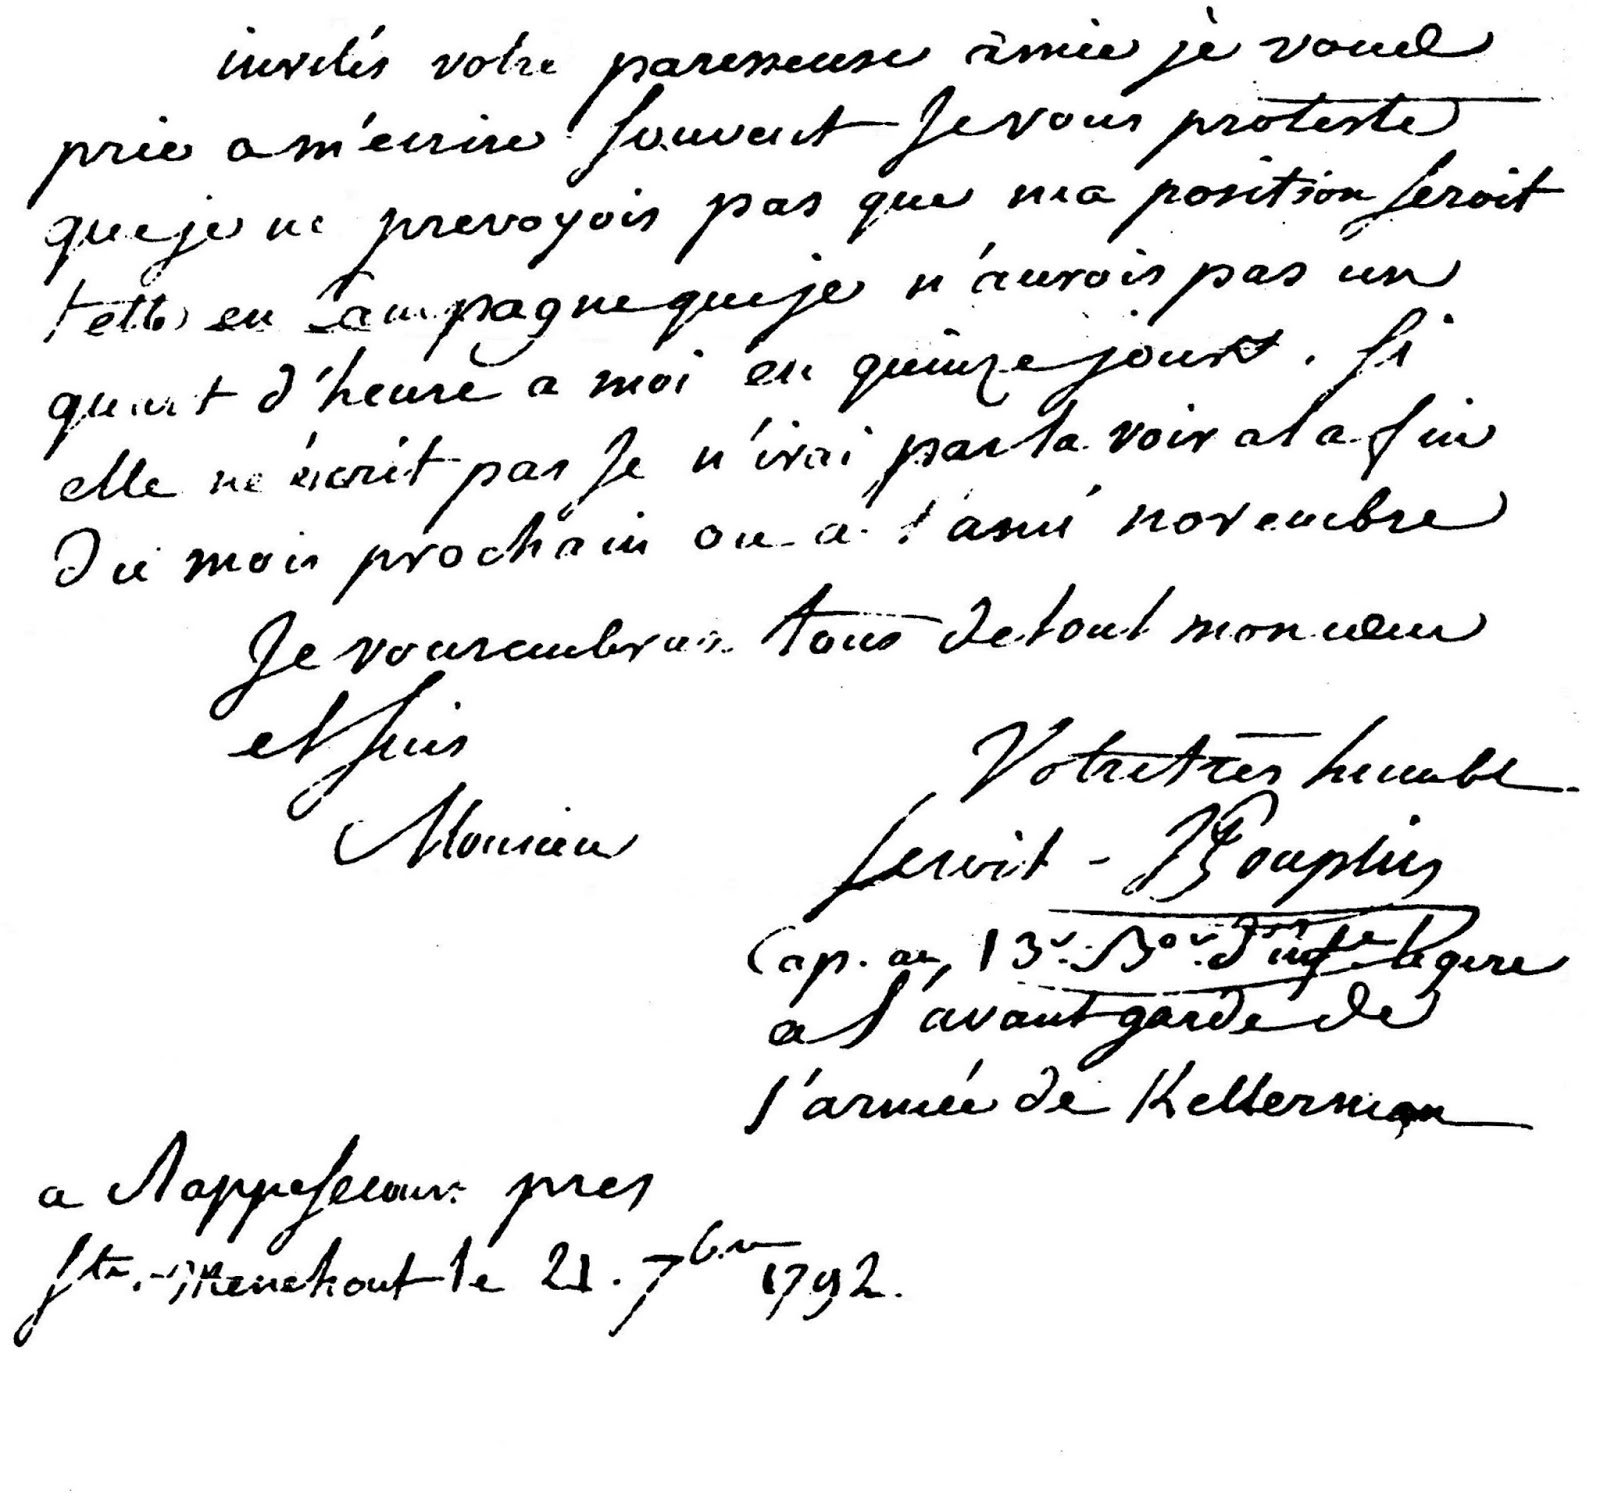 invités votre paresseuse amie je vous
prie a m'ecrire souvent Je vous proteste
que je ne prevoyois pas que ma position seroit
telle en Campagne que je n'aurois pas un
quart d'heure a moi en quinze jours. Si
elle ne écrit pas Je n'irai pas la voir a la fin
du mois prochain ou a la mi novembre
Je vous embrasse tous de tout mon cœur
et suis
Monsieur
Votre très humble
servit -
Cap. au 13e. Bon. d'infie legere
a l'avant garde de
l'armée de Kellerman
a près
Ste. Menehout le 21. 7bre 1792.